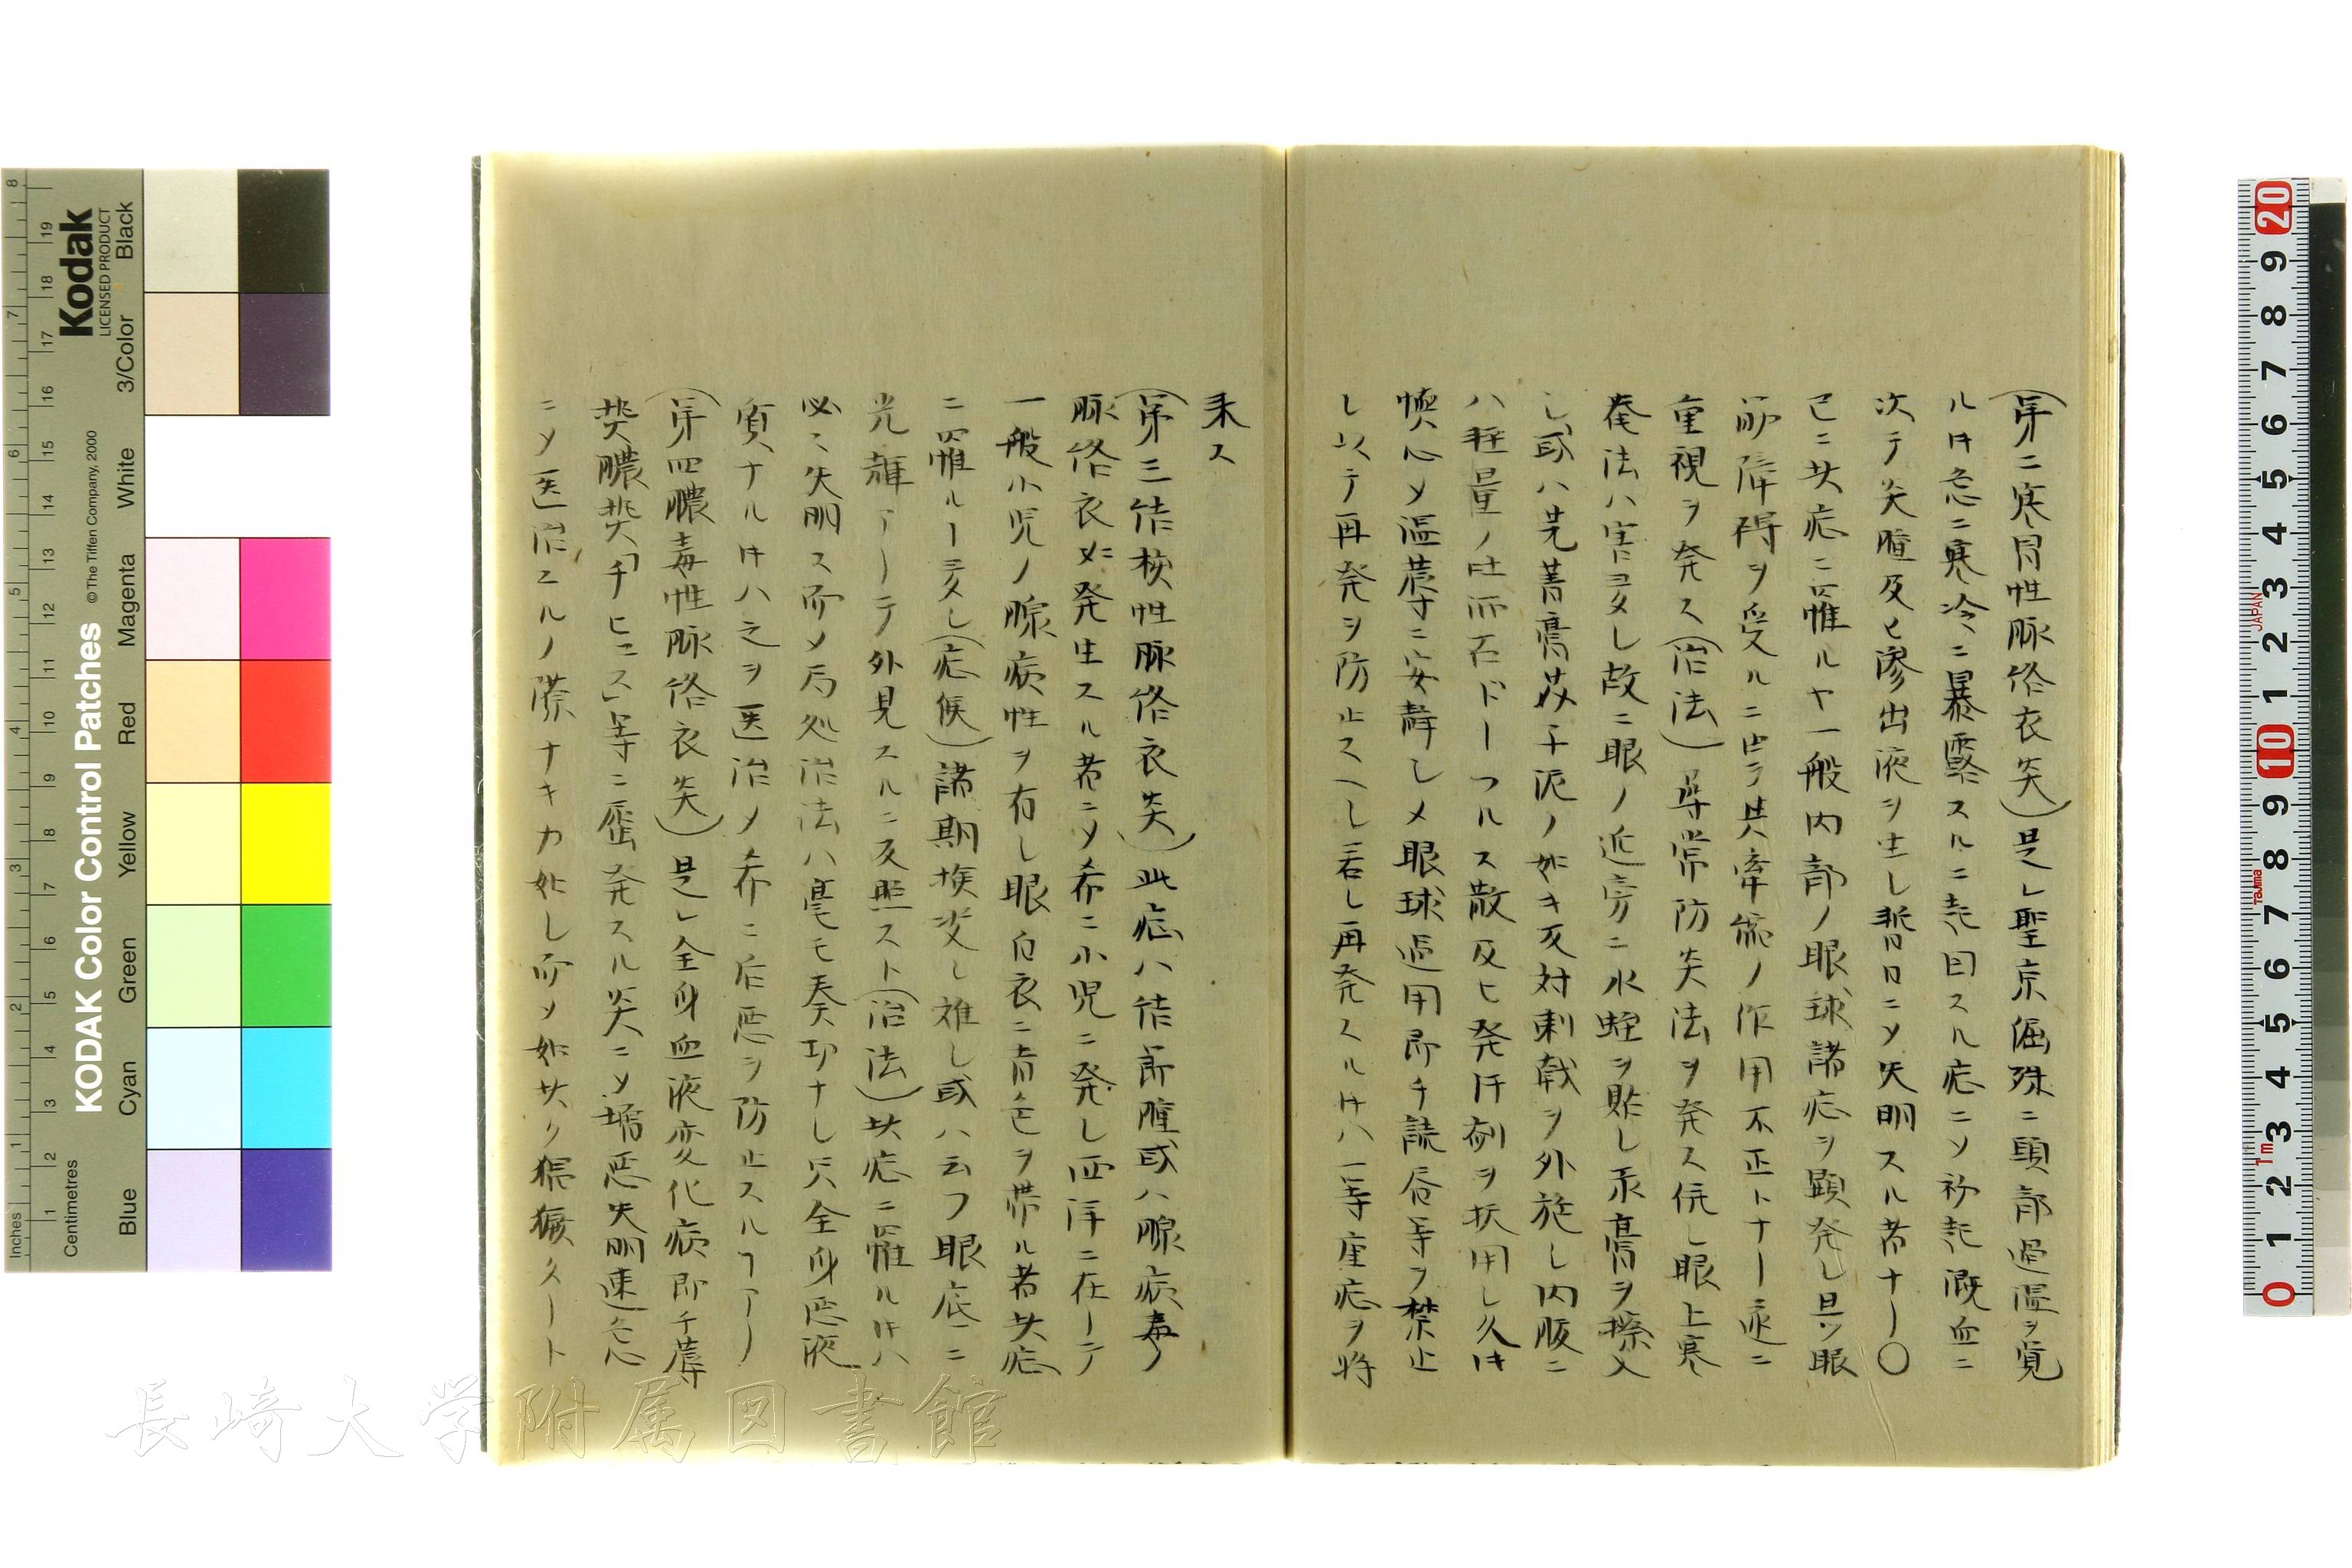 （第二寒冒性脈絡衣炎）是レ聖京偏殊ニ頭部過温ヲ覚
ルヰ急ニ寒冷ニ暴露スルニ起因スル症ニソ初起溉血ニ
次テ炎腫及ヒ滲出液ヲ生レ暫日ニソ失明スル者ナー〇
已ニ此症ニ罹ルヤ一般内部ノ眼球諸症ヲ顕発し且ツ眼
筋障碍ヲ受ルニ因テ其牽縮ノ作用不正トナー遂ニ
重視ヲ発ス（治法）尋常防炎法ヲ発ス但し眼上寒
奄法ハ害アレ故ニ眼ノ近旁ニ水蛭ヲ貼し汞膏ヲ擦入
し或ハ芫菁膏芥子泥ノ如キ反対刺戟ヲ外施し内服ニ
ハ軽量ノ吐酒石ドーフルス散及ヒ発汗剤ヲ択用し久ヰ
懊心ソ温蓐ニ安静しメ眼球過用即チ読谷等ヲ禁止
し以テ再発ヲ防止スヘし若し再発スルヰハ一等重症ヲ将
来ス
（第三結核性脈絡衣炎）此症ハ結節腫或ハ腺病毒ノ
脈絡衣ニ発生スル者ニソ希ニ小児ニ発し西洋ニ在ーテ
一般小児ノ腺病性ヲ有し眼白衣ニ青色ヲ帯ル者此症
ニ罹ルー多し（症候）諸期挨変し雖し或ハ云フ眼底ニ
光輝アーテ外見スルニ反照スト（治法）此症ニ罹ルヰハ
必ス失明ス而ソ局処治法ハ毫モ奏功ナし只全身悪液
質ナルヰハ之ヲ医治ノ希ニ后悪ヲ防止スルヿアー
（第四膿毒性脈絡衣炎）是レ全身血液変化病即チ蓐
熱膿熱「チヒユス」等ニ届発スル炎ニソ増悪失明速急
ニソ医治スルノ隙ナキカ如し而ソ如此ク猖獗タート
Kodak
LICENSED PRODUCT
KODAK Color Control Patches
© The Tiffen Company, 2000
Inches
Centimetres
Blue
Cyan
Green
Yellow
Red
Magenta
White
3/Color
Black
JAPAN
Tajima
長崎大学附属図書館